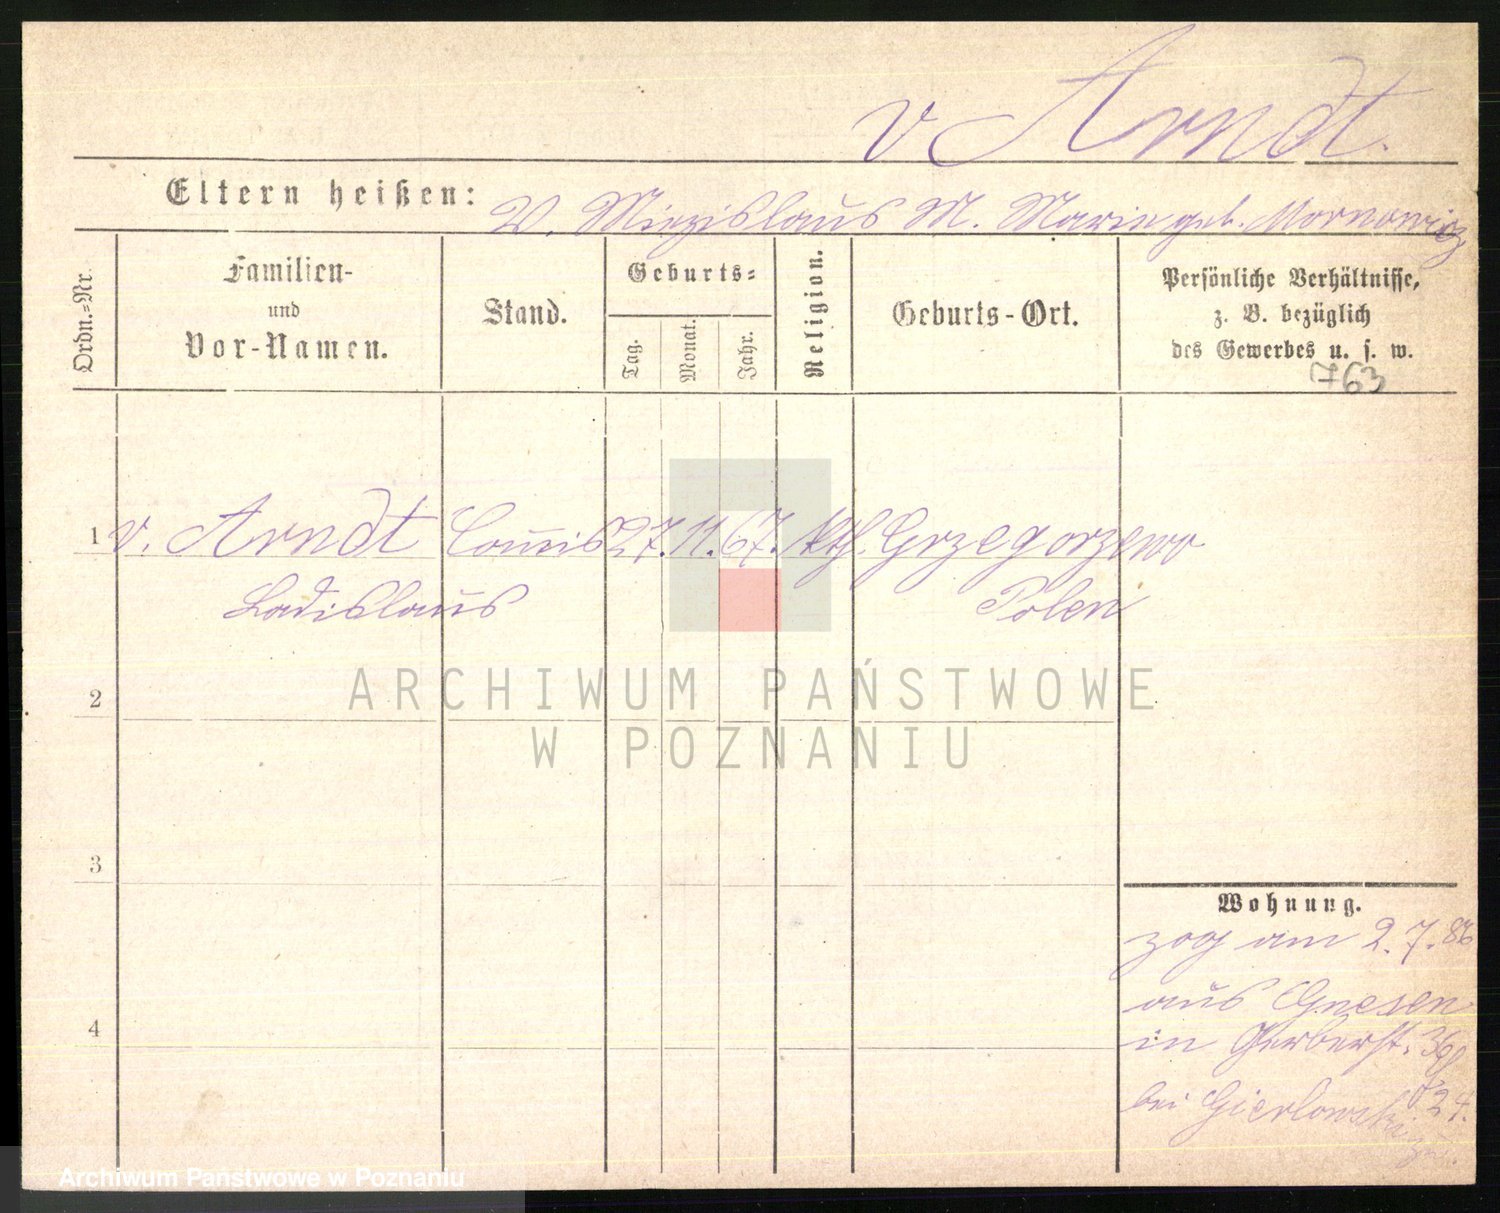 v Arndt.
Eltern heißen: V. Miezislaus M. Marie geb. Mornowicz
Ordn.-Nr.
Familien-
und
Vor-Namen.
Stand.
Geburts-
Tag.
Monat.
Jahr.
Religion.
Geburts-Ort.
Persönliche Verhältnisse,
z. B. bezüglich
des Gewerbes u. s. w.
763
1 v. Arndt Commis 27. 11. 67. kth. Grzegorzewo
Ladislaus Polen
2
3
4
Wohnung.
zog am 2.7.86
aus Gnesen
in Gerberst. 36
bei Gierlowski
ARCHIWUM PAŃSTWOWE
W POZNANIU
Archiwum Państwowe w Poznaniu